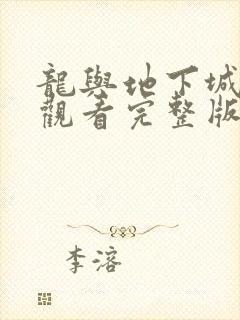 龍與地下城
觀看完整版
李溶